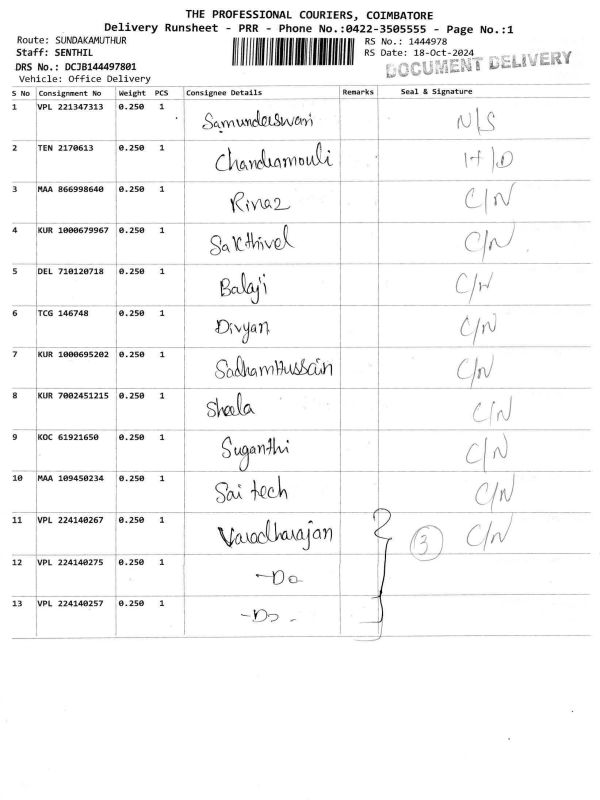 THE PROFESSIONAL COURIERS, COIMBATORE
Delivery Runsheet - PRR - Phone No.:0422-3505555 - Page No.:1
Route: SUNDAKAMUTHUR RS No.: 1444978
Staff: SENTHIL RS Date: 18-Oct-2024
DRS No.: DCJB144497801 DOCUMENT DELIVERY
Vehicle: Office Delivery
S No Consignment No Weight PCS Consignee Details Remarks Seal & Signature
1 VPL 221347313 0.250 1 Samundeeswari N/S
2 TEN 2170613 0.250 1 Chandramouli H/D
3 MAA 866998640 0.250 1 Rinaz C/N
4 KUR 1000679967 0.250 1 Sakthivel C/N
5 DEL 710120718 0.250 1 Balaji C/N
6 TCG 146748 0.250 1 Divyan C/N
7 KUR 1000695202 0.250 1 SadhamHussain C/N
8 KUR 7002451215 0.250 1 Sheela C/N
9 KOC 61921650 0.250 1 Suganthi C/N
10 MAA 109450234 0.250 1 Sai tech C/N
11 VPL 224140267 0.250 1 Varadharajan 3 C/N
12 VPL 224140275 0.250 1 -Do
13 VPL 224140257 0.250 1 -Do-